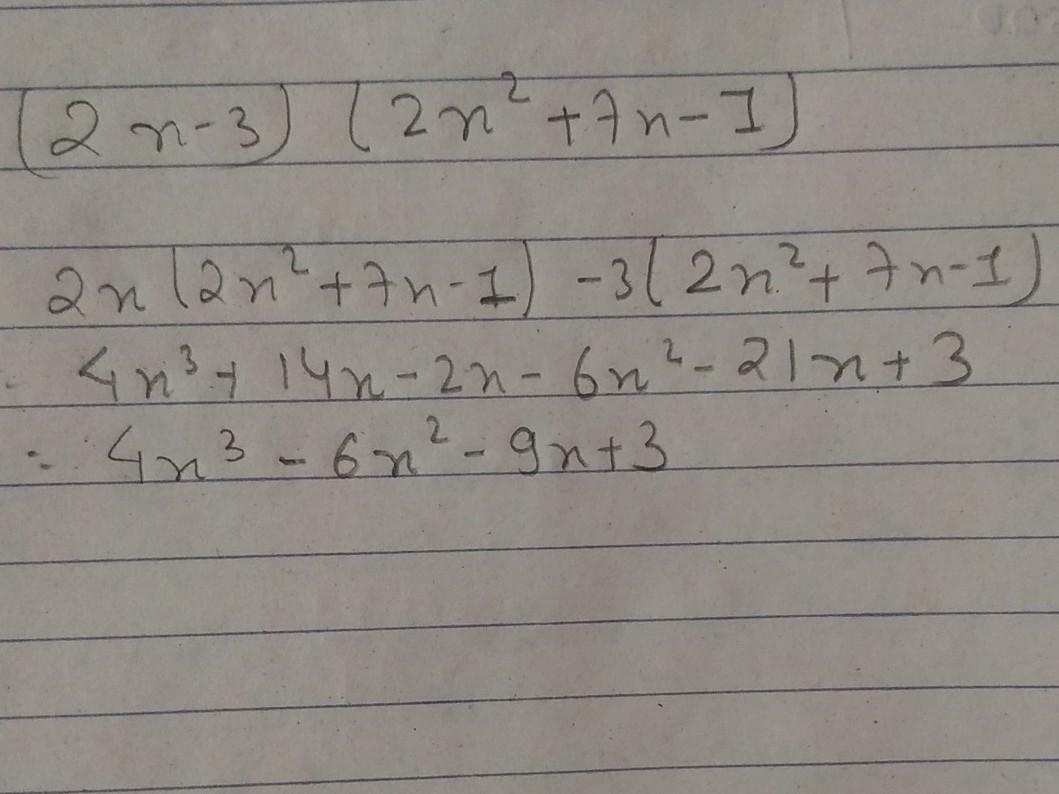 (2x-3) (2x²+7x-1)
2x(2x²+7x-1) -3(2x²+7x-1)
4x³+14x-2x-6x²-21x+3
= 4x³-6x²-9x+3